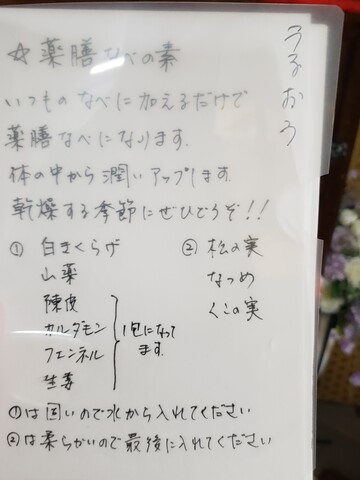 うるおう
☆薬膳なべの素
いつものなべに加えるだけで
薬膳なべになります.
体の中から潤いアップします.
乾燥する季節にぜひどうぞ!!
① 白きくらげ
山薬
陳皮
カルダモン
フェンネル
生姜
1包になって
ます.
② 松の実
なつめ
くこの実
①は固いので水から入れてください
②は柔らかいので最後に入れてください